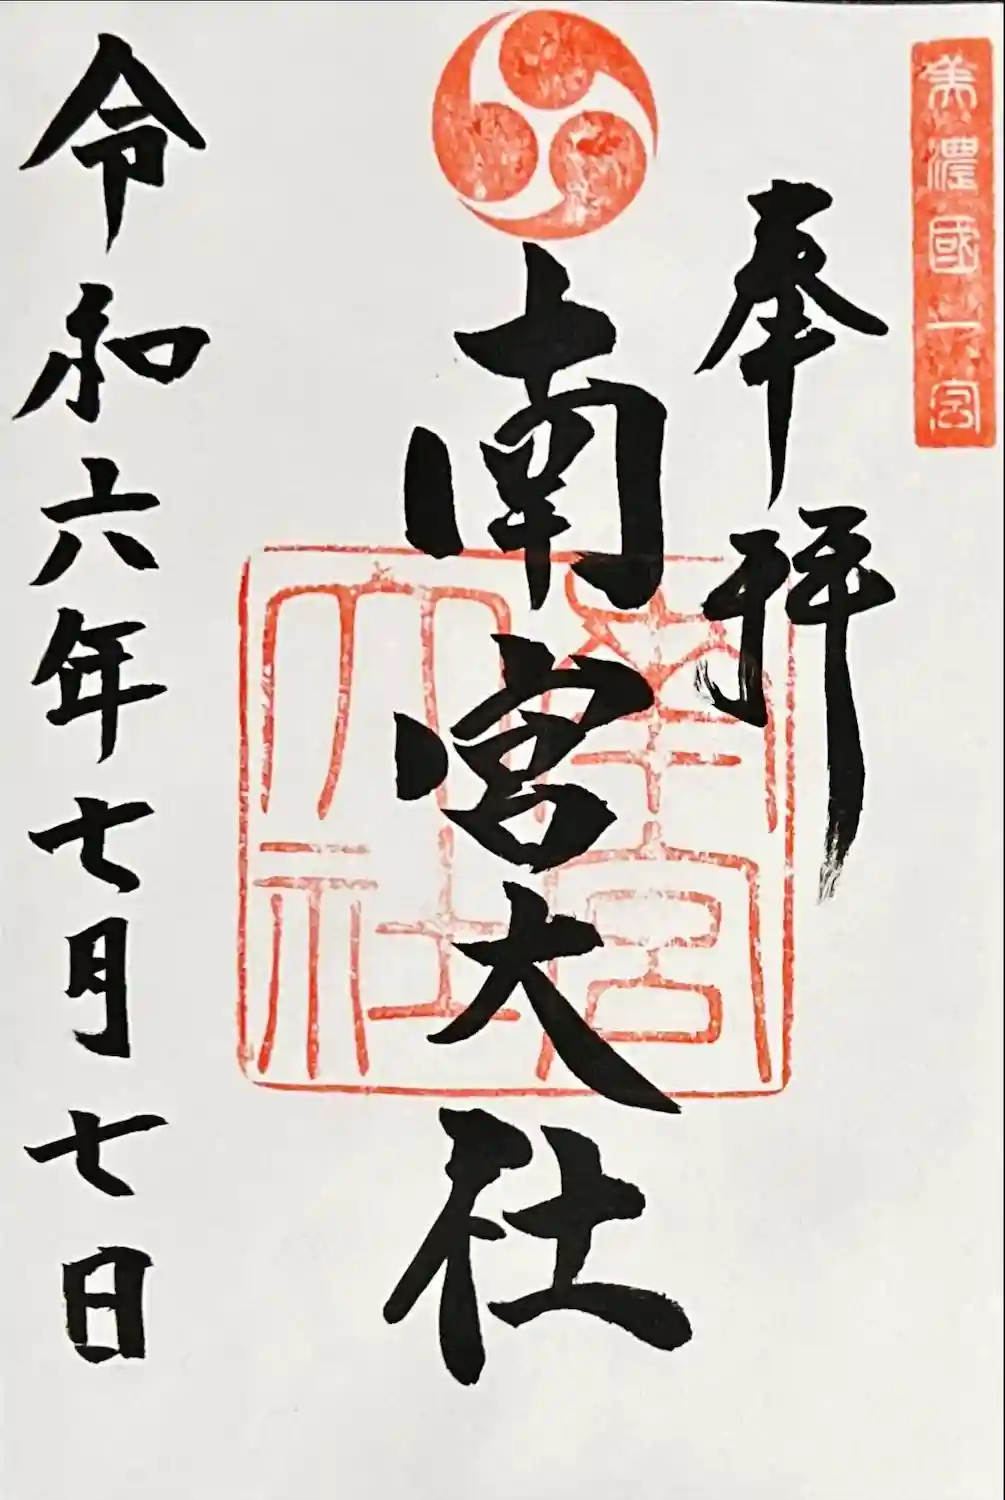 美濃國一宮
奉拝
南宮大社
南宮
大社
令和六年七月七日